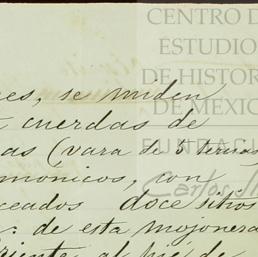 CENTRO D
ESTUDIO
DE HISTOR
DE MEXIC
FUNDACI
Carlos
es, se miden
cuerdas de
as (vara de 5
monicos, con
ceados doce sitios
: de esta mojonera
riente al pié de